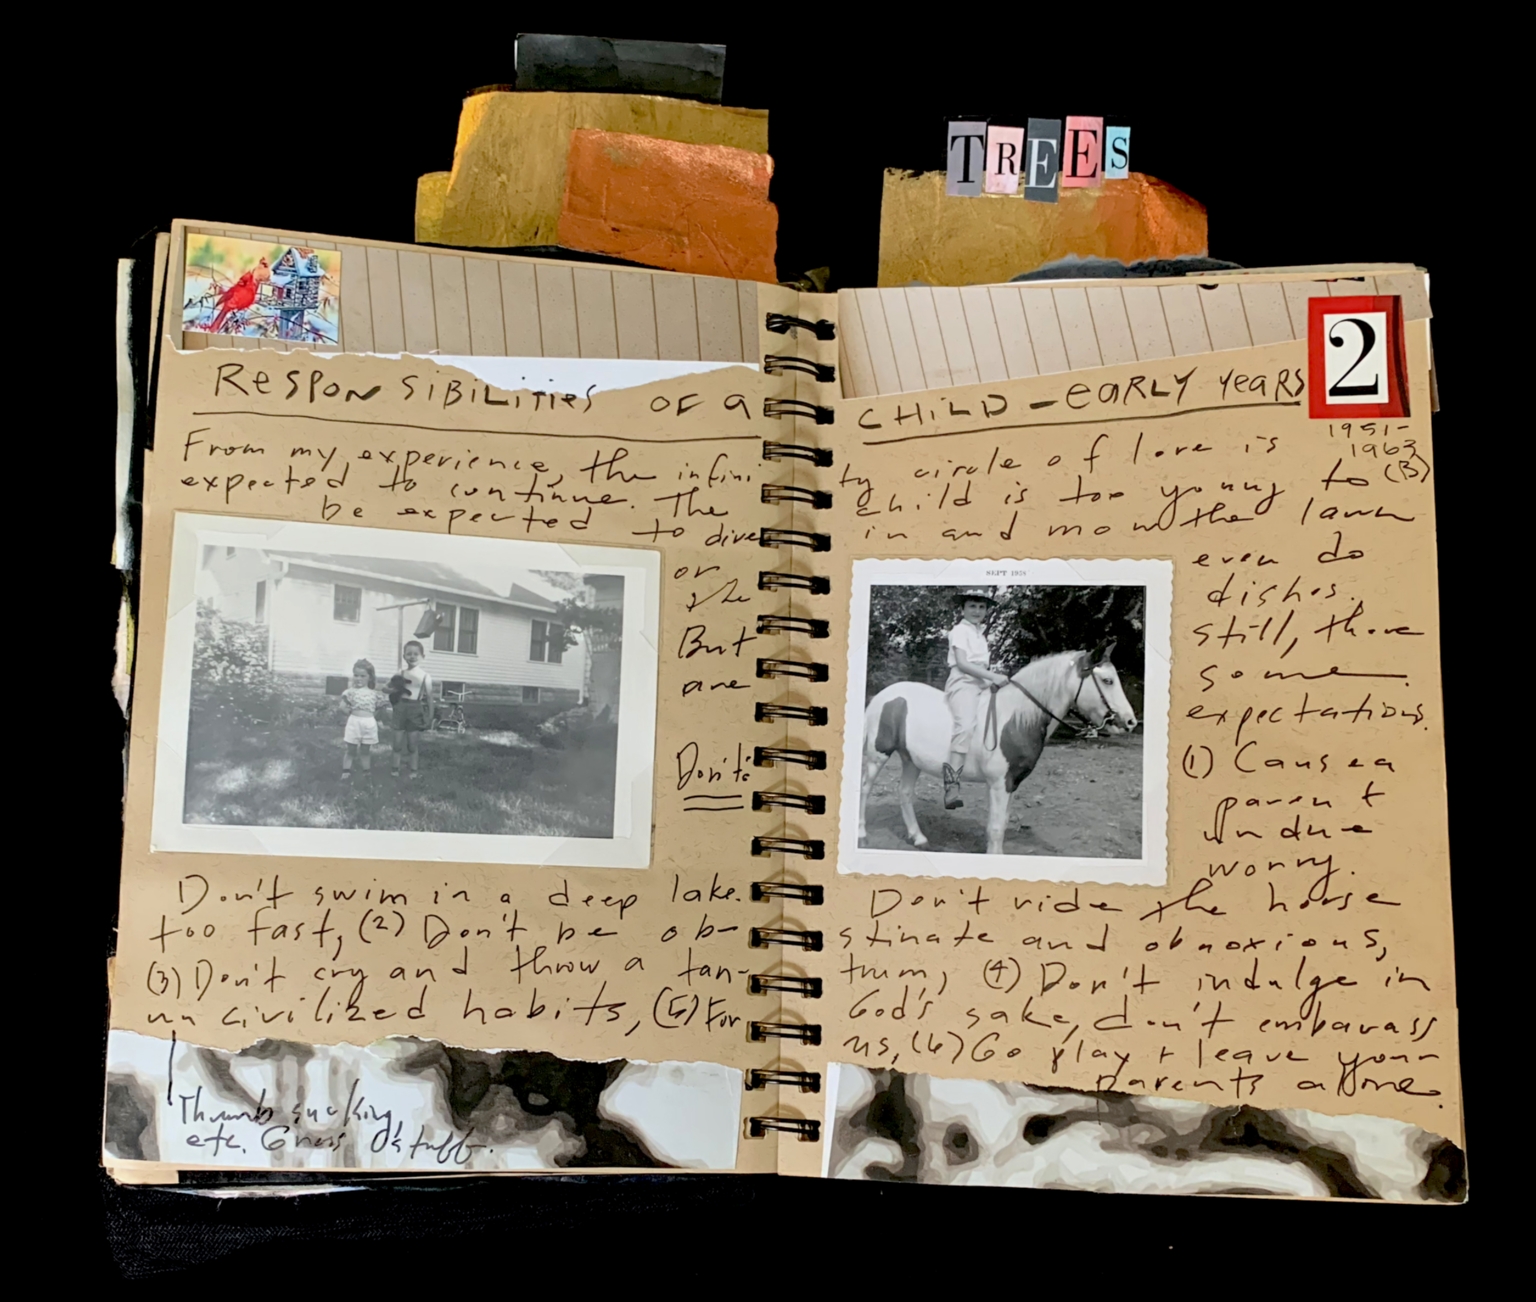 TREES
2
RESPONSIBILITIES OF A CHILD - EARLY YEARS
1951-
1963
(B)
From my experience, the infinity circle of love is
expected to continue. The child is too young to
be expected to dive in and mow the lawn
or even do
the dishes.
But still, there
are some
expectations.
SEPT 1958
Don't: (1) Cause a
parent
undue
worry.
Don't swim in a deep lake. Don't ride the horse
too fast, (2) Don't be ob- stinate and obnoxious,
(3) Don't cry and throw a tan- trum, (4) Don't indulge in
uncivilized habits, (5) For God's sake, don't embarass
us, (6) Go play + leave your
parents alone.
Thumb sucking,
etc. Gross stuff.